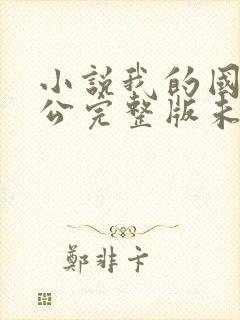 小説我的國
公完整版未
鄭非卞